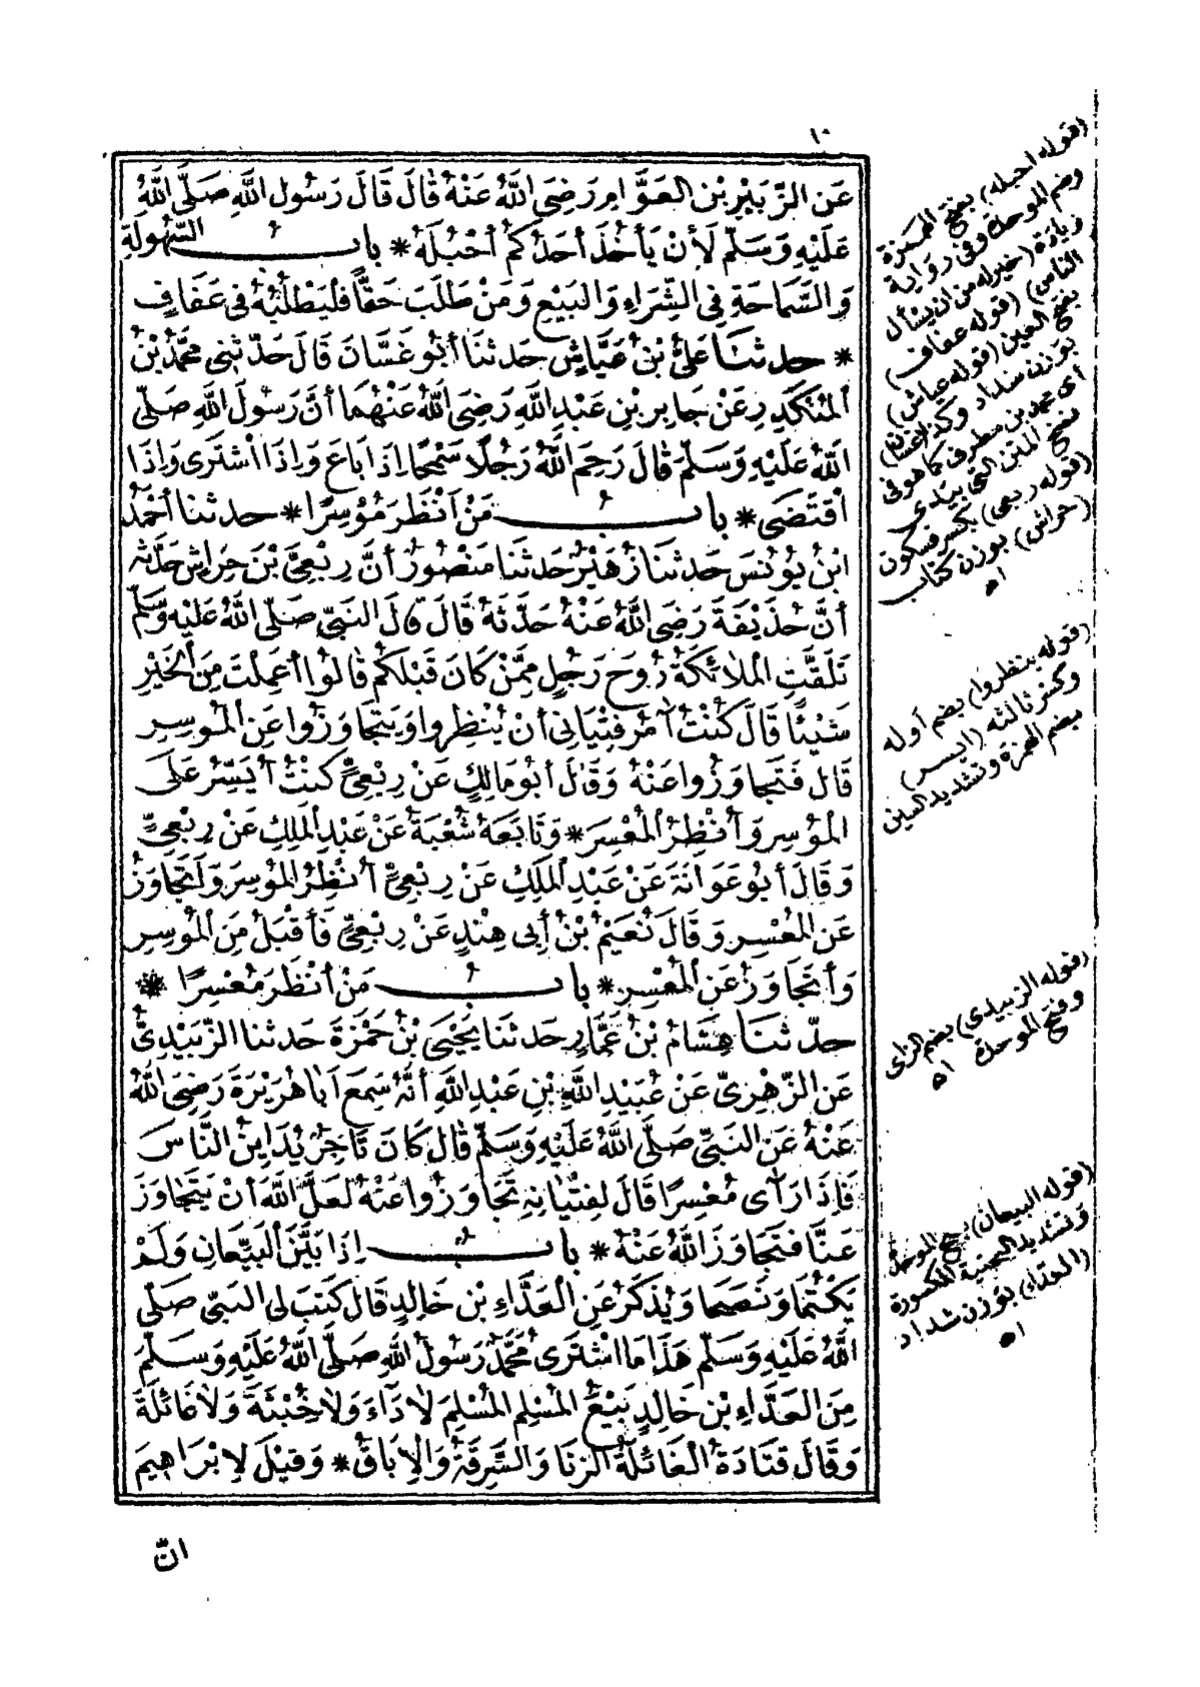 ١٠
عَنِ الزُّبَيْرِ بْنِ الْعَوَّامِ رَضِيَ اللَّهُ عَنْهُ قَالَ قَالَ رَسُولُ اللَّهِ صَلَّى اللَّهُ
عَلَيْهِ وَسَلَّمَ لَأَنْ يَأْخُذَ أَحَدُكُمْ أَحْبُلَهُ * بابُ السُّهُولَةِ
وَالسَّمَاحَةِ فِي الشِّرَاءِ وَالْبَيْعِ وَمَنْ طَلَبَ حَقًّا فَلْيَطْلُبْهُ فِي عَفَافٍ
* حدثنا عَلِيُّ بْنُ عَيَّاشٍ حَدثنَا أَبُو غَسَّانَ قَالَ حَدّثني مُحَمَّدُ بْنُ
الْمُنْكَدِرِ عَنْ جَابِرِ بْنِ عَبْدِ اللَّهِ رَضِيَ اللَّهُ عَنْهُمَا أَنَّ رَسُولَ اللَّهِ صَلَّى
اللَّهُ عَلَيْهِ وَسَلَّمَ قَالَ رَحِمَ اللَّهُ رَجُلًا سَمْحًا إِذَا بَاعَ وَإِذَا اشْتَرَى وَإِذَا
اقْتَضَى * بابُ مَنْ أَنْظَرَ مُوسِرًا * حدثنا أَحْمَدُ
ابْنُ يُونُسَ حَدثنَا زُهَيْرٌ حَدثنَا مَنْصُورٌ أَنَّ رِبْعِيَّ بْنَ حِرَاشٍ حَدَّثَهُ
أَنَّ حُذَيْفَةَ رَضِيَ اللَّهُ عَنْهُ حَدَّثَهُ قَالَ قَالَ النَّبِيُّ صَلَّى اللَّهُ عَلَيْهِ وَسَلَّمَ
تَلَقَّتِ الْمَلَائِكَةُ رُوحَ رَجُلٍ مِمَّنْ كَانَ قَبْلَكُمْ قَالُوا أَعَمِلْتَ مِنَ الْخَيْرِ
شَيْئًا قَالَ كُنْتُ آمُرُ فِتْيَانِي أَنْ يُنْظِرُوا وَيَتَجَاوَزُوا عَنِ الْمُوسِرِ
قَالَ فَتَجَاوَزُوا عَنْهُ وَقَالَ أَبُو مَالِكٍ عَنْ رِبْعِيٍّ كُنْتُ أُيَسِّرُ عَلَى
الْمُوسِرِ وَأُنْظِرُ الْمُعْسِرَ * وَتَابَعَهُ شُعْبَةُ عَنْ عَبْدِ الْمَلِكِ عَنْ رِبْعِيٍّ
وَقَالَ أَبُو عَوَانَةَ عَنْ عَبْدِ الْمَلِكِ عَنْ رِبْعِيٍّ أُنْظِرُ الْمُوسِرَ وَأَتَجَاوَزُ
عَنِ الْمُعْسِرِ وَقَالَ نُعَيْمُ بْنُ أَبِي هِنْدٍ عَنْ رِبْعِيٍّ فَأَقْبَلُ مِنَ الْمُوسِرِ
وَأَتَجَاوَزُ عَنِ الْمُعْسِرِ * بابُ مَنْ أَنْظَرَ مُعْسِرًا *
حدّثنا هِشَامُ بْنُ عَمَّارٍ حَدثنَا يَحْيَى بْنُ حَمْزَةَ حَدثنا الزُّبَيْدِيُّ
عَنِ الزُّهْرِيِّ عَنْ عُبَيْدِ اللَّهِ بْنِ عَبْدِ اللَّهِ أَنَّهُ سَمِعَ أَبَا هُرَيْرَةَ رَضِيَ اللَّهُ
عَنْهُ عَنِ النَّبِيِّ صَلَّى اللَّهُ عَلَيْهِ وَسَلَّمَ قَالَ كَانَ تَاجِرٌ يُدَايِنُ النَّاسَ
فَإِذَا رَأَى مُعْسِرًا قَالَ لِفِتْيَانِهِ تَجَاوَزُوا عَنْهُ لَعَلَّ اللَّهَ أَنْ يَتَجَاوَزَ
عَنَّا فَتَجَاوَزَ اللَّهُ عَنْهُ * بابُ إِذَا بَيَّنَ الْبَيِّعَانِ وَلَمْ
يَكْتُمَا وَنَصَحَا وَيُذْكَرُ عَنِ الْعَدَّاءِ بْنِ خَالِدٍ قَالَ كَتَبَ لِي النَّبِيُّ صَلَّى
اللَّهُ عَلَيْهِ وَسَلَّمَ هَذَا مَا اشْتَرَى مُحَمَّدٌ رَسُولُ اللَّهِ صَلَّى اللَّهُ عَلَيْهِ وَسَلَّمَ
مِنَ الْعَدَّاءِ بْنِ خَالِدٍ بَيْعُ الْمُسْلِمِ الْمُسْلِمَ لَا دَاءَ وَلَا خِبْثَةَ وَلَا غَائِلَةَ
وَقَالَ قَتَادَةُ الْغَائِلَةُ الزِّنَا وَالسَّرِقَةُ وَالْإِبَاقُ * وَقِيلَ لِإِبْرَاهِيمَ
انّ
(قوله احبله) بفتح الهمزة
وضم الموحدة وفى رواية
زيادة (خير له من ان يسأل
الناس) (قوله عفاف)
بفتح العين (قوله عياش)
بوزن شداد وكذا (غسان)
أى محمد بن مطرف كما هو فى
بفتح المتن التى بيدى
(قوله ربعى) بكسر فسكون
(حراش) بوزن كتاب
اه
(قوله ينظروا) بضم أوله
وكسر ثالثه (ايسر)
بضم الهمزة وتشديد السين
(قوله الزبيدى) بضم الزاى
وفتح الموحدة اه
(قوله البيعان) بفتح الموحدة
وتشديد التحتية المكسورة
(العداء) بوزن شداد
اه